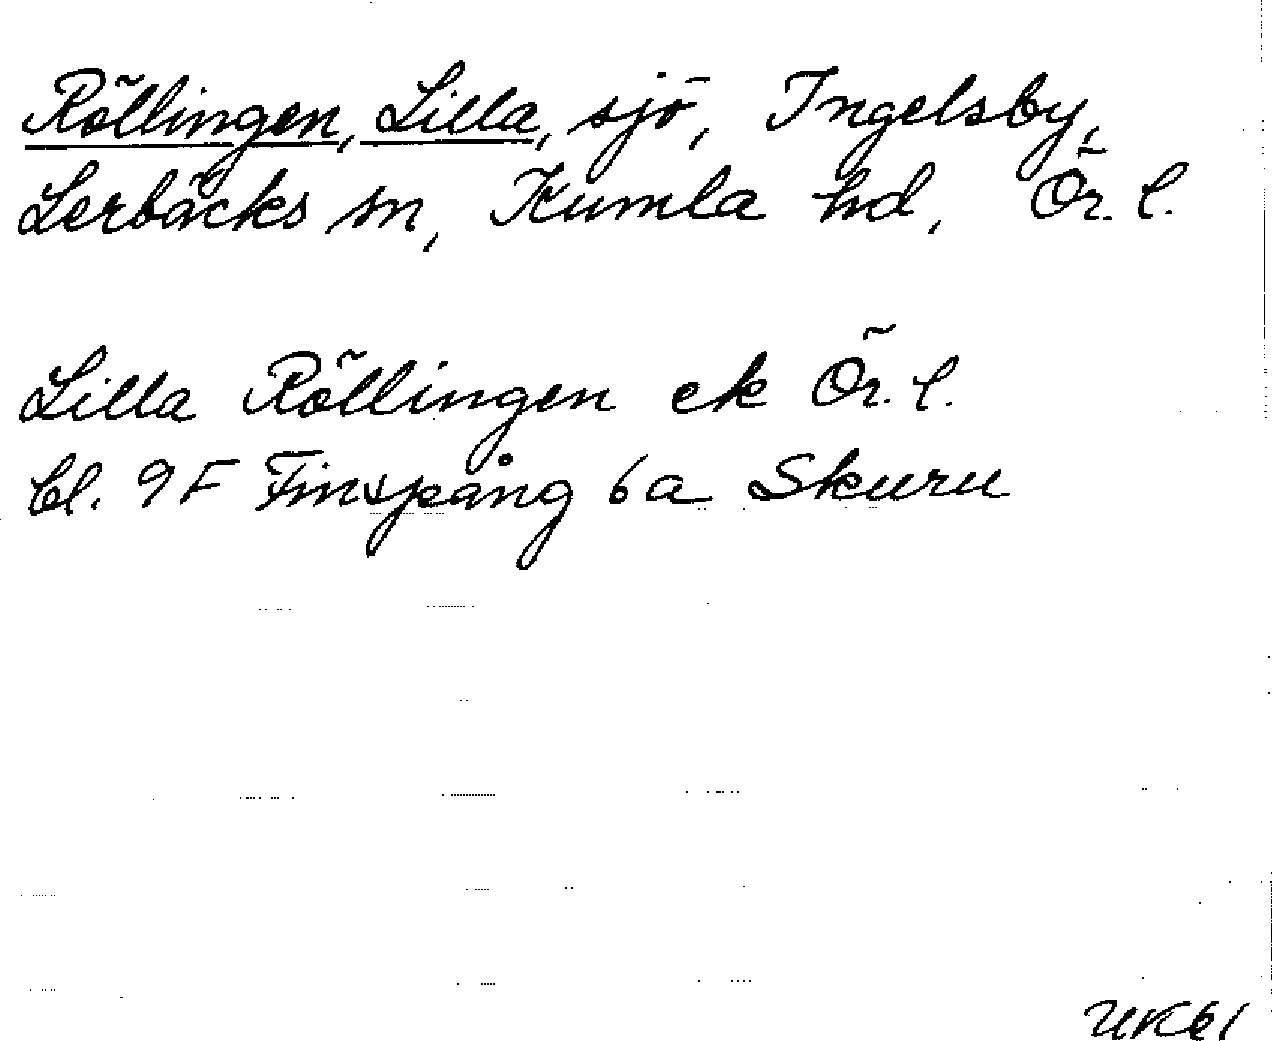 Röllingen, Lilla, sjö, Ingelsby,
Lerbäcks sn, Kumla hd, Ör. l.
Lilla Röllingen ek Ör. l.
bl. 9F Finspång 6a Skuru